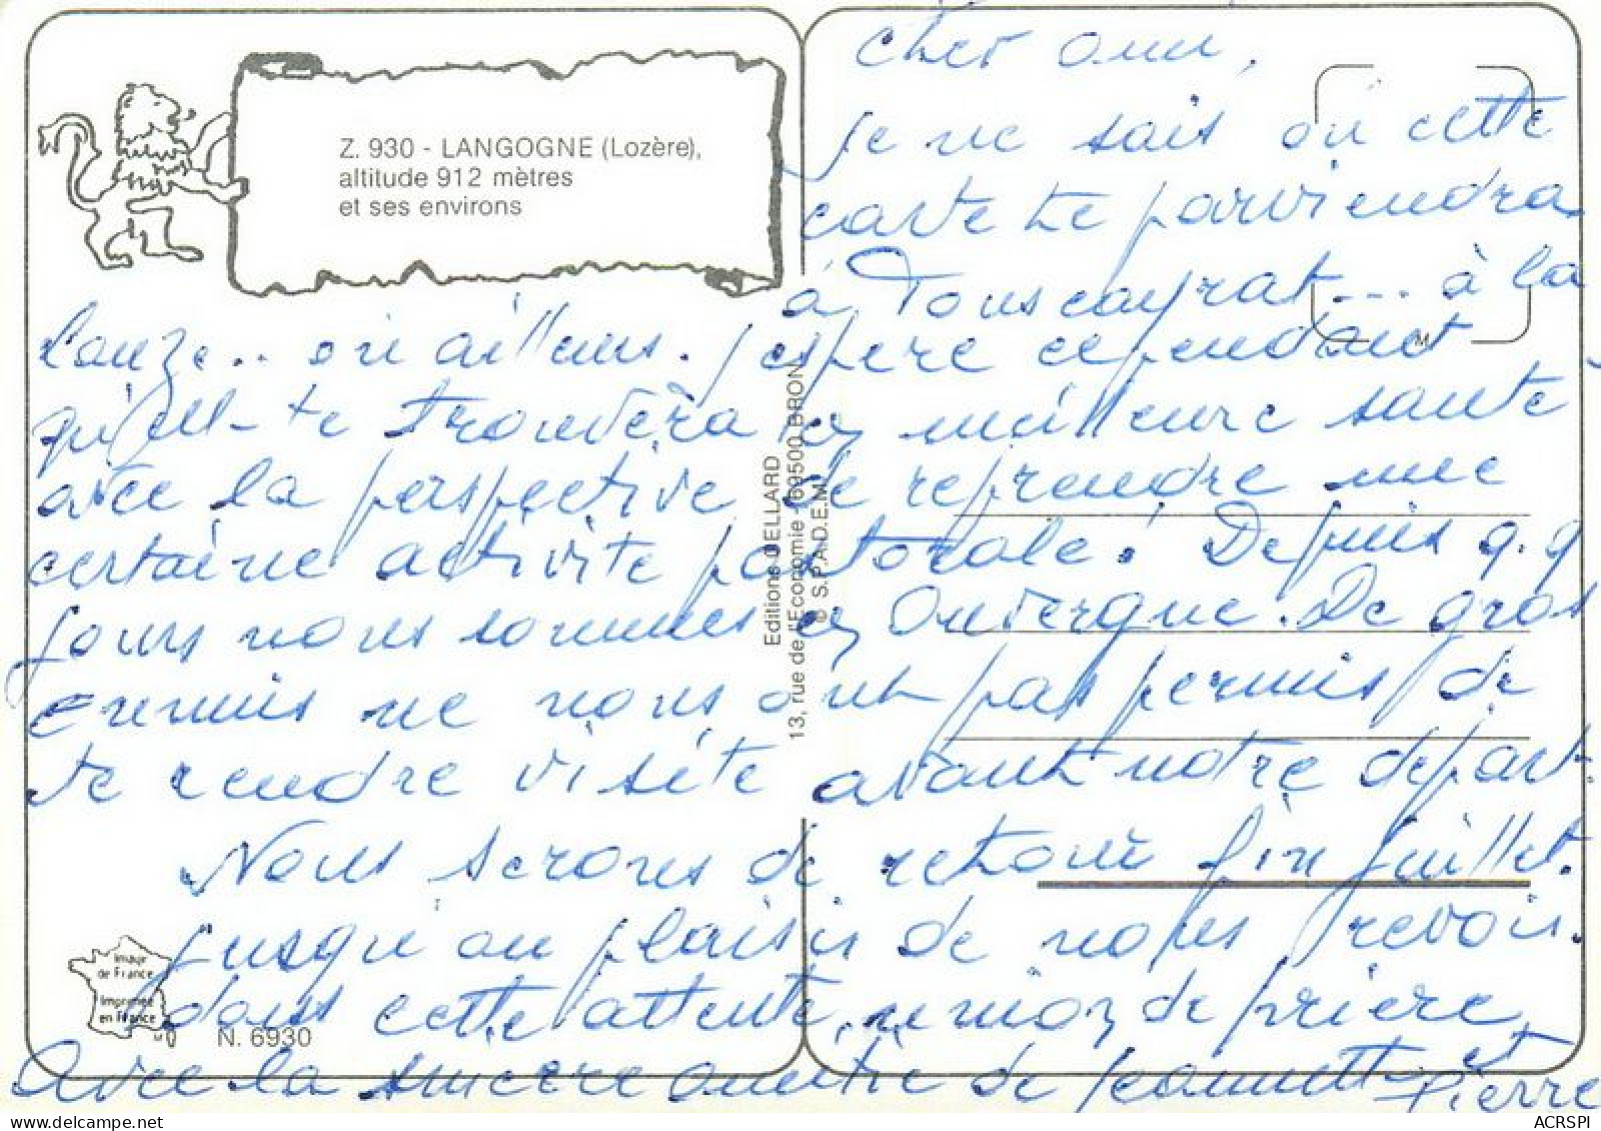 Z. 930 - LANGOGNE (Lozère),
altitude 912 mètres
et ses environs
cher ami,
je ne sais où cette
carte te parviendra
à Touscayrat... à la
Lauze... ou ailleurs. J'espère cependant
qu'elle te trouvera en meilleure santé
avec la perspective de reprendre une
certaine activité pastorale. Depuis q.q
jours nous sommes en Auvergne. De gros
ennuis ne nous ont pas permis de
te rendre visite avant notre départ.
Nous serons de retour fin juillet.
Jusqu'au plaisir de nous revoir.
dans cette attente, union de prière
Avec la sincère amitié de Jeannette et
Pierre
Editions DELLARD
13, rue de l'Economie - 69500 BRON
© S.P.A.D.E.M.
M
Image
de France
Imprimée
en France
N. 6930
www.delcampe.net
ACRSPI